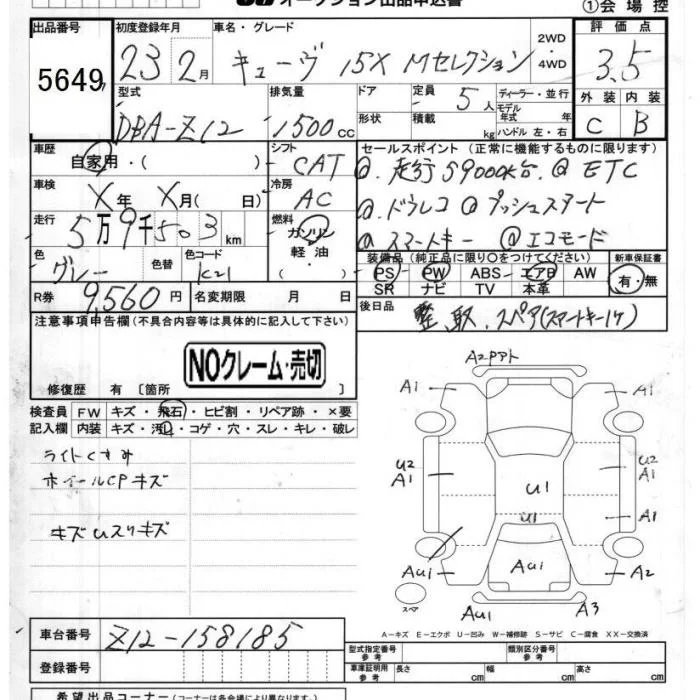 オークション出品申込書 ①会場控
出品番号 初度登録年月 車名・グレード 2WD・4WD 評価点
5649 23 2月 キューブ 15X Mセレクション 3.5
型式 排気量 ドア 定員 ディーラー・並行 外装 内装
DBA-Z12 1500cc 5人 モデル年式 年 C B
形状 積載 kg ハンドル 左・右
車歴 シフト セールスポイント(正常に機能するものに限ります)
自家用・( ) CAT @.走行59000K台.@ETC
車検 冷房
X年 X月( 日) AC @.ドラレコ @プッシュスタート
走行 燃料
5万9千503km ガソリン・軽油・( ) @スマートキー @エコモード
色 色替 色コード 装備品(純正品に限り○をつけてください) 新車保証書
グレー K21 PS PW ABS エアB AW 有・無
SR ナビ TV 本革
R券 9,560円 名変期限 月 日 後日品 整、取、スペア(スマートキー1ケ)
注意事項申告欄(不具合内容等は具体的に記入して下さい)
NOクレーム・売切
修復歴 有[箇所 ]
検査員記入欄 FW キズ・飛石・ヒビ割・リペア跡・×要
内装 キズ・汚・コゲ・穴・スレ・キレ・破レ
ライトくすみ
ホイールCPキズ
キズUスリキズ
A2Pアト
A1 A1
U2 A1 U2 A1
U1
U1 A1
AU1 AU1 A2
スペア AU1 A3
A-キズ E-エクボ U-凹み W-補修跡 S-サビ C-腐食 XX-交換済
車台番号 Z12-158185
登録番号 型式指定番号 参考 類別区分番号 参考
車庫証明用 参考 長さ cm 幅 cm 高さ cm
希望出品コーナー(コーナーは各会場により異なります)